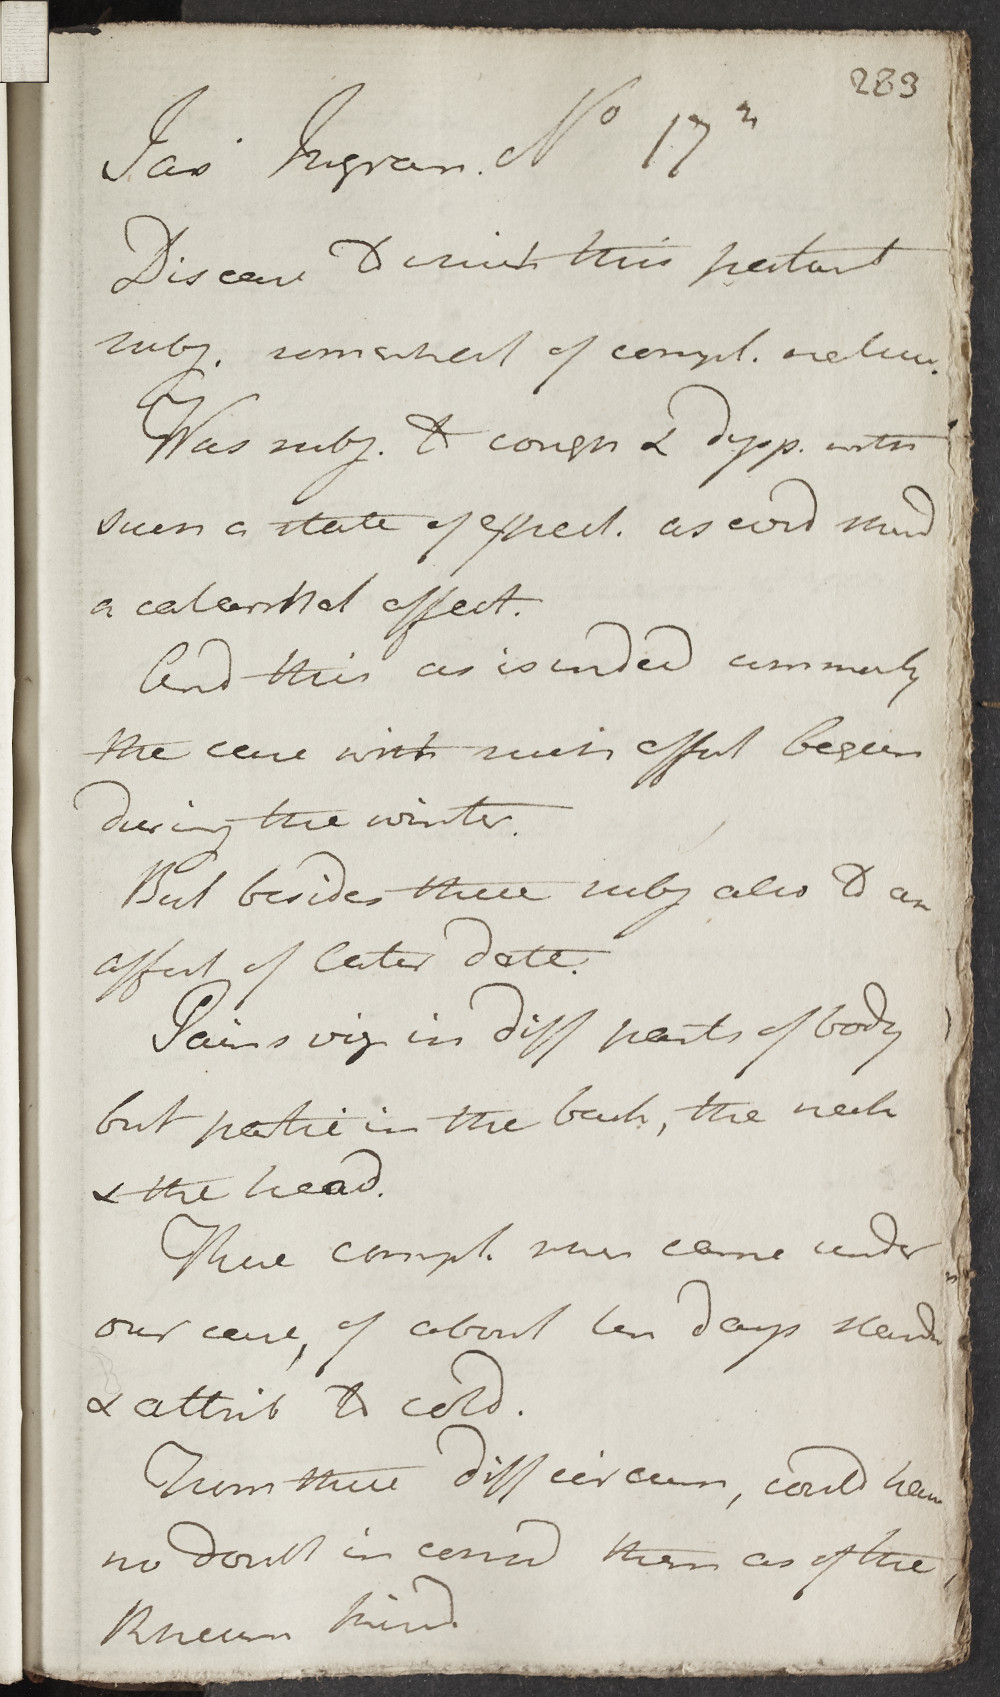 283
Jas Ingram. No 17
Disease to which this patient
subj. somewhat of compl. nature.
Was subj. to cough & dysp. with
such a state of expect. as cod shew
a catarrhal affect.
And this as is indeed commonly
the case with such affect began
during the winter.
But besides these subj also to an
affect of later date.
Pains viz in diff parts of body
but partic in the back, the neck
& the head.
These compl. when came under
our care, of about ten days standg
& attrib to cold.
From these diff circum, could have
no doubt in consid them as of the
Rheum kind.